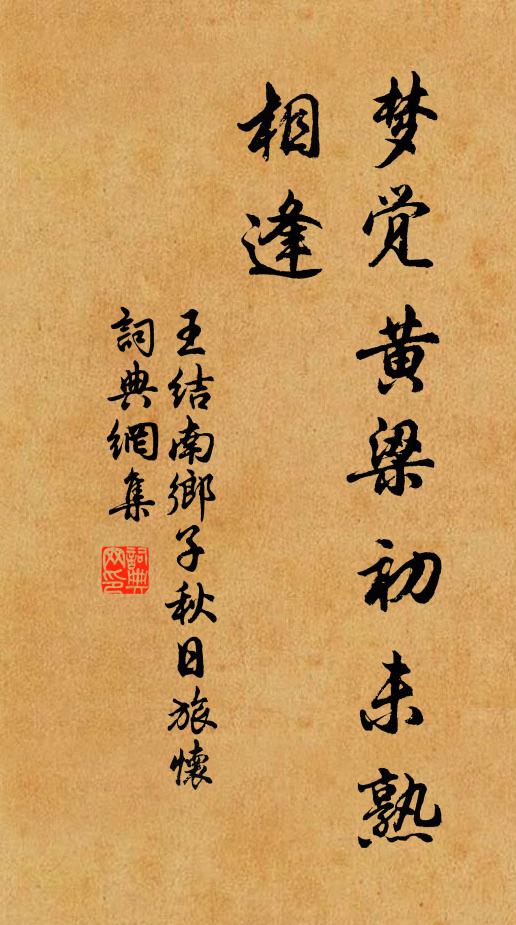 梦觉黄梁初未熟
相逢
王结南鄉子秋日旅懷
詞典網集
詞典
网印